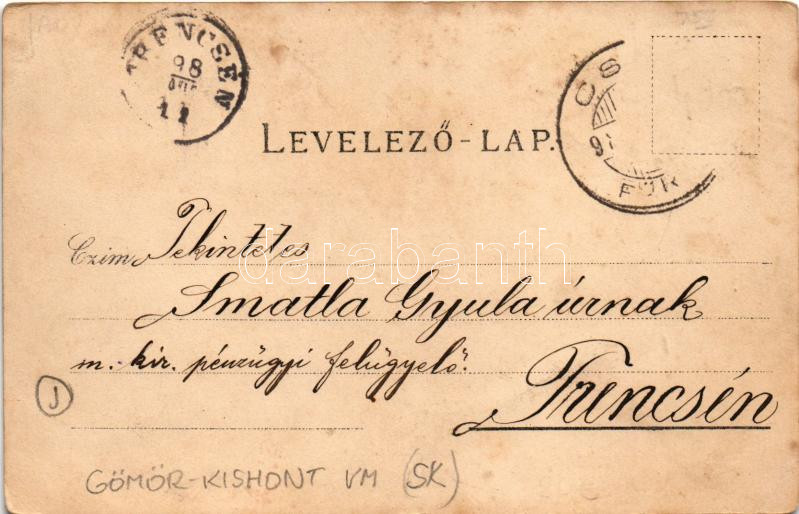 TRENCSÉN
98
11
CS
FÜR
LEVELEZŐ-LAP.
Czim Tekintetes
darabanth
Smatla Gyula úrnak
m. kir. pénzügyi felügyelő.
Trencsén
J
GÖMÖR-KISHONT VM (SK)